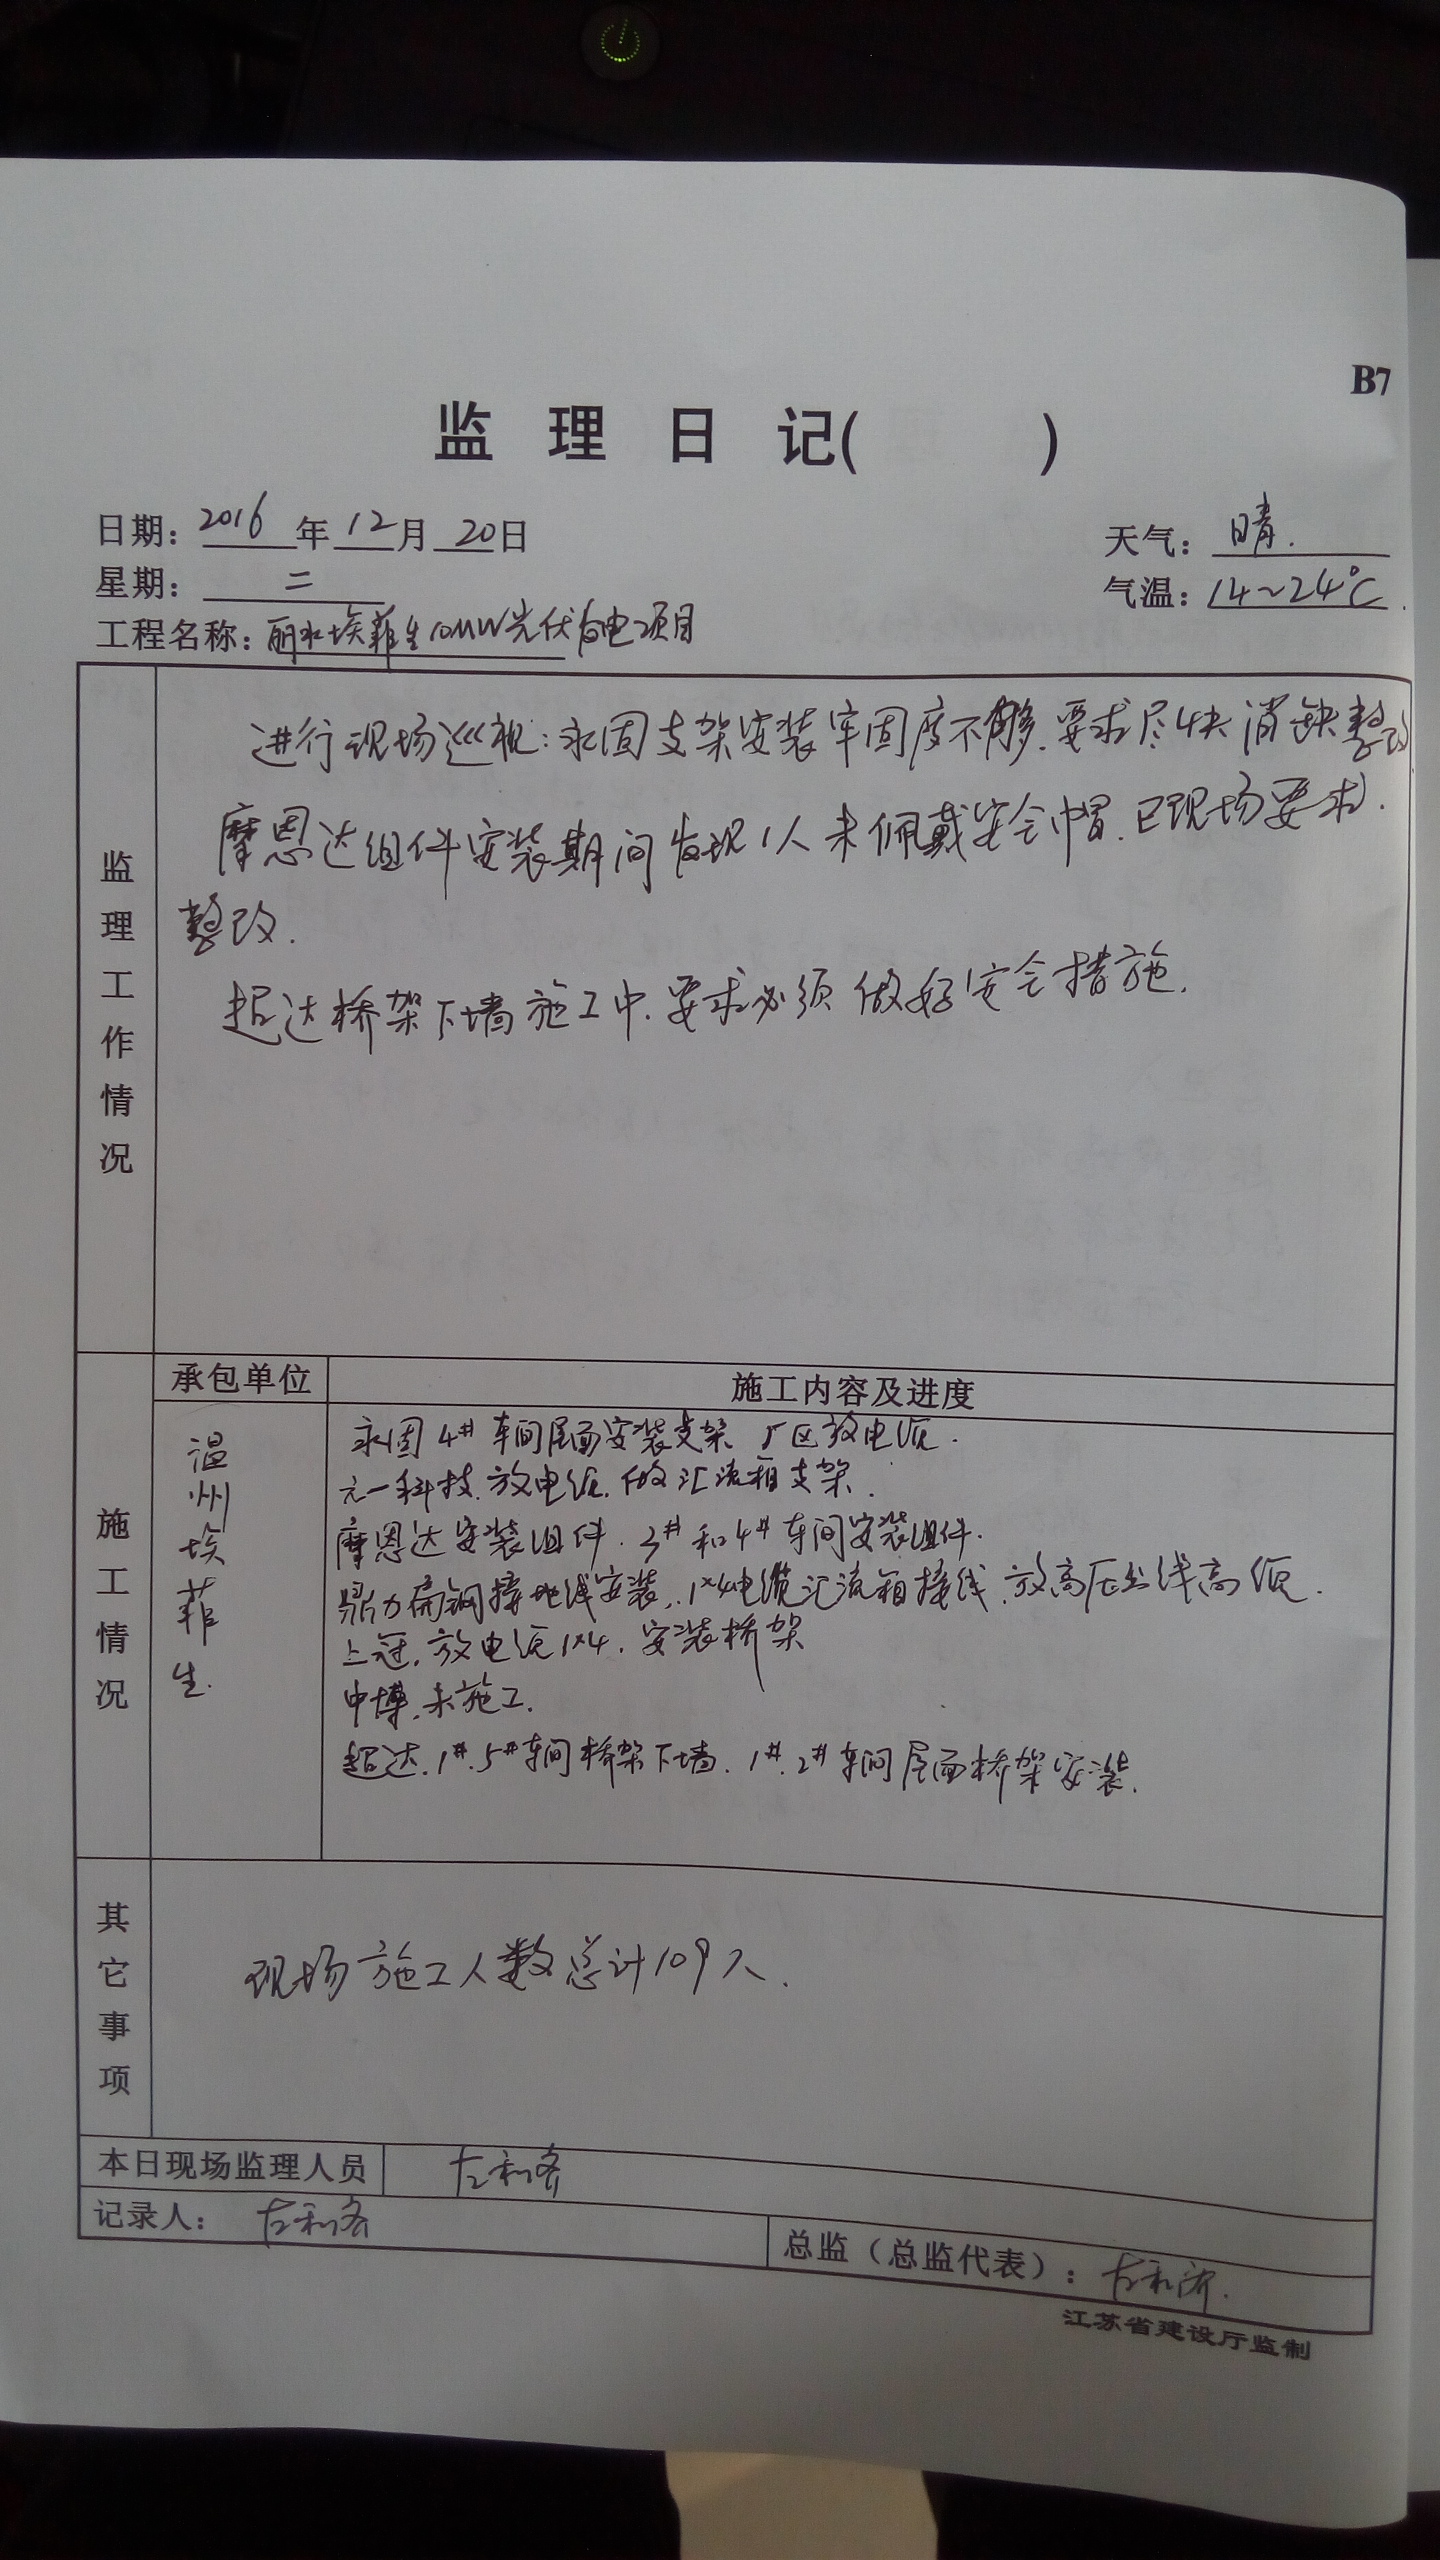 B7
监 理 日 记( )
日期: 2016 年 12 月 20 日
天气: 晴.
星期: 二
气温: 14~24℃.
工程名称: 丽水埃菲生10MW光伏发电项目
监理工作情况
进行现场巡视: 永固支架安装牢固度不够.要求尽快消缺整改
摩恩达组件安装期间发现1人未佩戴安全帽.已现场要求.
整改.
超达桥架下墙施工中.要求必须做好安全措施.
承包单位
施工内容及进度
施工情况
温州埃菲生.
永固4#车间屋面安装支架 厂区放电缆.
元一科技.放电缆.做汇流箱支架.
摩恩达安装组件.3#和4#车间安装组件.
鼎力扁钢接地线安装,.1×4电缆汇流箱接线.放高压出线高缆.
上冠.放电缆1×4.安装桥架
中博.未施工.
超达.1#.5#车间桥架下墙.1#.2#车间屋面桥架安装.
其它事项
现场施工人数总计109人.
本日现场监理人员
记录人:
总监（总监代表）:
江苏省建设厅监制